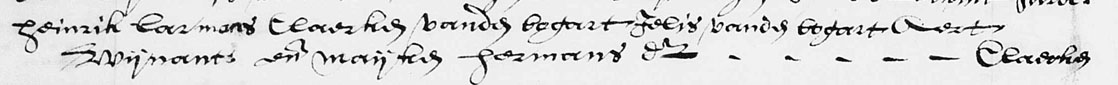 heinrik Larmans Claerken vanden bogart Jelis vanden bogart Aert
Wijnants en maijken hermans dr - - - - - Claerken